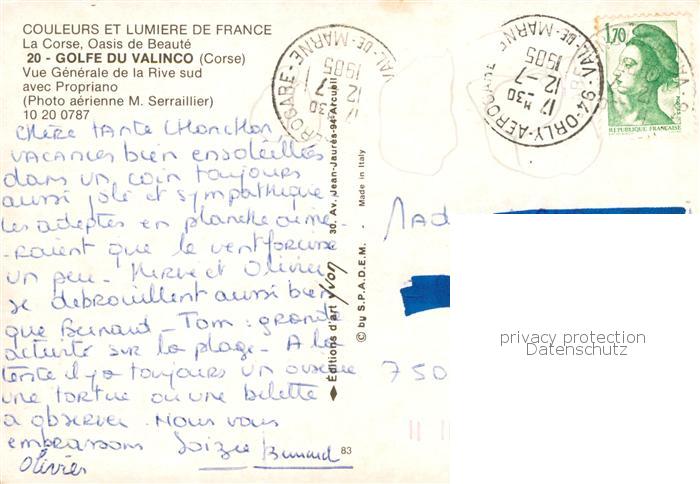 COULEURS ET LUMIERE DE FRANCE
La Corse, Oasis de Beauté
20 - GOLFE DU VALINCO (Corse)
Vue Générale de la Rive sud
avec Propriano
(Photo aérienne M. Serraillier)
10 20 0787
Chère tante Chonchon,
vacances bien ensoleillées
dans un coin toujours
aussi joli et sympathique
les adeptes en planche aime-
-raient que le vent forcisse
un peu. Hervé et Olivier
se debrouillent aussi bien
que Bernard - Tom: grande
activité sur la plage. A la
tente il y a toujours un
une tortue ou une
a observer. Nous vous
embrassons Soizic Bernard
Olivier
Editions d'art Yvon 30, Av. Jean-Jaurès-94-Arcueil
© by S.P.A.D.E.M. Made in Italy
83
94-ORLY-AEROGARE
VAL-DE-MARNE
17 H 30
12-7
1985
94-ORLY-AEROGARE
VAL-DE-MARNE
17 H 30
12-7
1985
1,70
REPUBLIQUE FRANÇAISE
Mad
750
privacy protection
Datenschutz